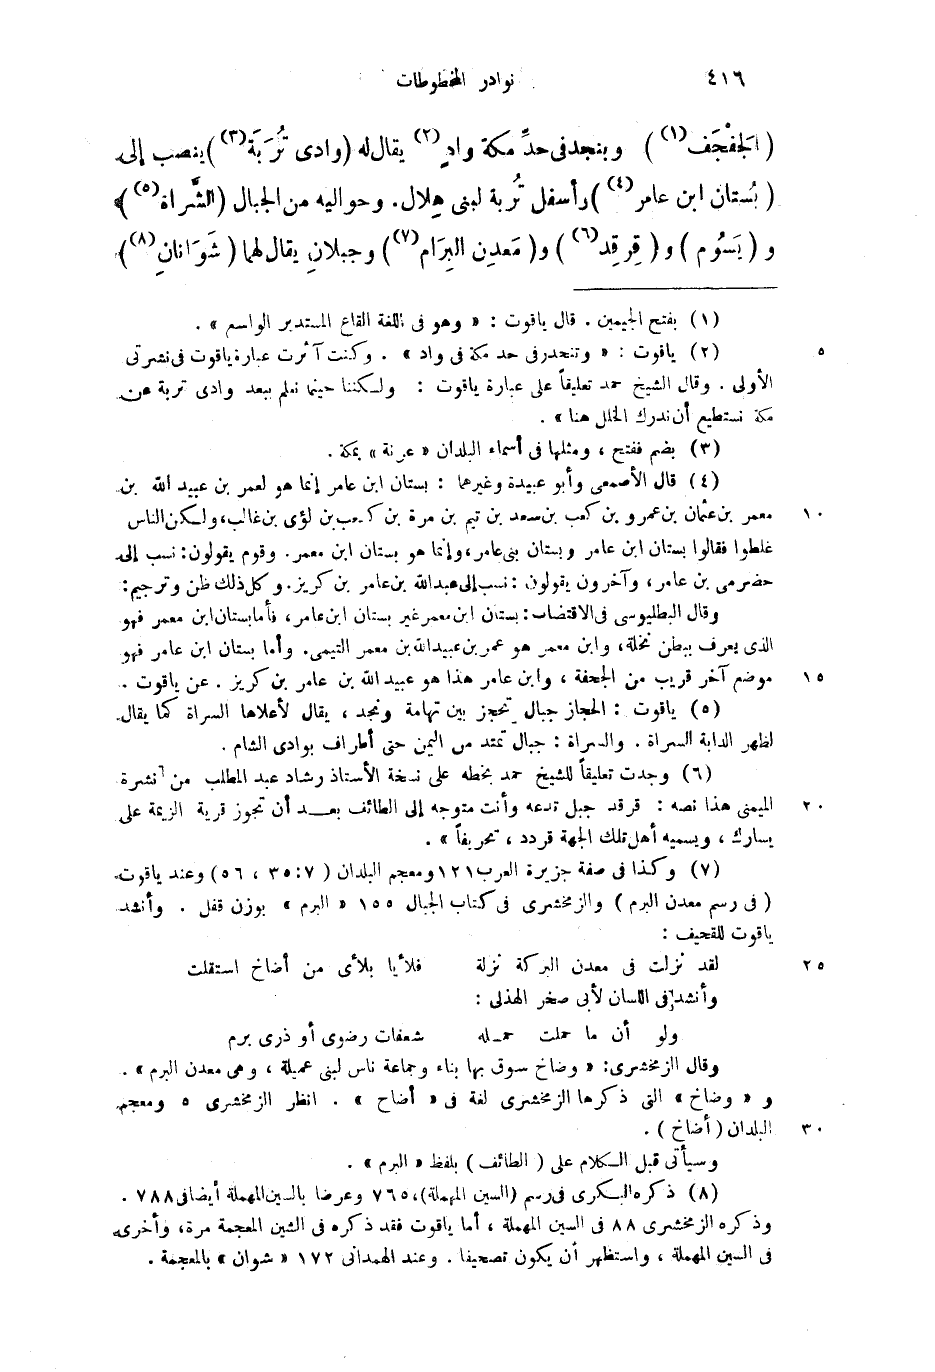 ٤١٦ نوادر المخطوطات
(الجَفْجَف(١)) وبنجد فى حدِّ مكة وادٍ(٢) يقال له (وادى تُرَبَة(٣)) ينصب إلى
(بُستان ابن عامر(٤)) وأسفل تُربة لبنى هِلال. وحواليه من الجبال (الشَّراة(٥))
و (يَسُوم) و (قِرقِد(٦)) و (مَعدِن البِرَام(٧)) وجبلانِ يقال لهما (شَوَانانِ(٨))
(١) بفتح الجيمين . قال ياقوت : « وهو فى اللغة القاع المستدير الواسع » .
(٢) ياقوت : « وتنحدر فى حد مكة فى واد » . وكنت آثرت عبارة ياقوت فى نشرتى ٥
الأولى . وقال الشيخ حمد تعليقاً على عبارة ياقوت : ولكننا حينما نعلم ببعد وادى تربة عن
مكة نستطيع أن ندرك الخلل هنا » .
(٣) بضم ففتح ، ومثلها فى أسماء البلدان « عرنة » بمكة .
(٤) قال الأصمعى وأبو عبيدة وغيرهما : بستان ابن عامر إنما هو لعمر بن عبيد الله بن
معمر بن عثمان بن عمرو بن كعب بن سعد بن تيم بن مرة بن كعب بن لؤى بن غالب، ولكن الناس ١٠
غلطوا فقالوا بستان ابن عامر وبستان بنى عامر، وإنما هو بستان ابن معمر. وقوم يقولون: نسب إلى
حضرمى بن عامر، وآخرون يقولون: نسب إلى عبد الله بن عامر بن كريز. وكل ذلك ظن وترجيم:
وقال البطليوسى فى الاقتضاب: بستان ابن معمر غير بستان ابن عامر، فأما بستان ابن معمر فهو
الذى يعرف ببطن نخلة، وابن معمر هو عمر بن عبيد الله بن معمر التيمى. وأما بستان ابن عامر فهو
موضع آخر قريب من الجحفة ، وابن عامر هذا هو عبيد الله بن عامر بن كريز . عن ياقوت . ١٥
(٥) ياقوت : الحجاز جبال تحجز بين تهامة ونجد ، يقال لأعلاها السراة كما يقال
لظهر الدابة السراة . والسراة : جبال تمتد من اليمن حتى أطراف بوادى الشام .
(٦) وجدت تعليقاً للشيخ حمد بخطه على نسخة الأستاذ رشاد عبد المطلب من نشرة
الميمنى هذا نصه : قرقد جبل تدعه وأنت متوجه إلى الطائف بعد أن تجوز قرية الزيمة على ٢٠
يسارك ، ويسميه أهل تلك الجهة قردد ، تحريفاً » .
(٧) وكذا فى صفة جزيرة العرب ١٢١ ومعجم البلدان ( ٧ : ٣٥ ، ٥٦ ) وعند ياقوت
( فى رسم معدن البرم ) والزمخشرى فى كتاب الجبال ١٥٥ « البرم » بوزن قفل . وأنشد
ياقوت للقحيف :
لقد نزلت فى معدن البركة نزلة فلأيا بلأى من أضاخ استقلت ٢٥
وأنشد فى اللسان لأبى صخر الهذلى :
ولو أن ما حملت حمله شعفات رضوى أو ذرى برم
وقال الزمخشرى: « وضاخ سوق بها بناء وجماعة ناس لبنى عميلة ، وهى معدن البرم » .
و « وضاخ » التى ذكرها الزمخشرى لغة فى « أضاخ » . انظر الزمخشرى ٥ ومعجم
البلدان ( أضاخ ) . ٣٠
وسيأتى قبل الكلام على ( الطائف ) بلفظ « البرم » .
(٨) ذكره البكرى فى رسم (السين المهملة)، ٧٦٥ وعرضا بالسين المهملة أيضا فى ٧٨٨ .
وذكره الزمخشرى ٨٨ فى السين المهملة ، أما ياقوت فقد ذكره فى الشين المعجمة مرة، وأخرى
فى السين المهملة ، واستظهر أن يكون تصحيفا . وعند الهمدانى ١٧٢ « شوان » بالمعجمة .